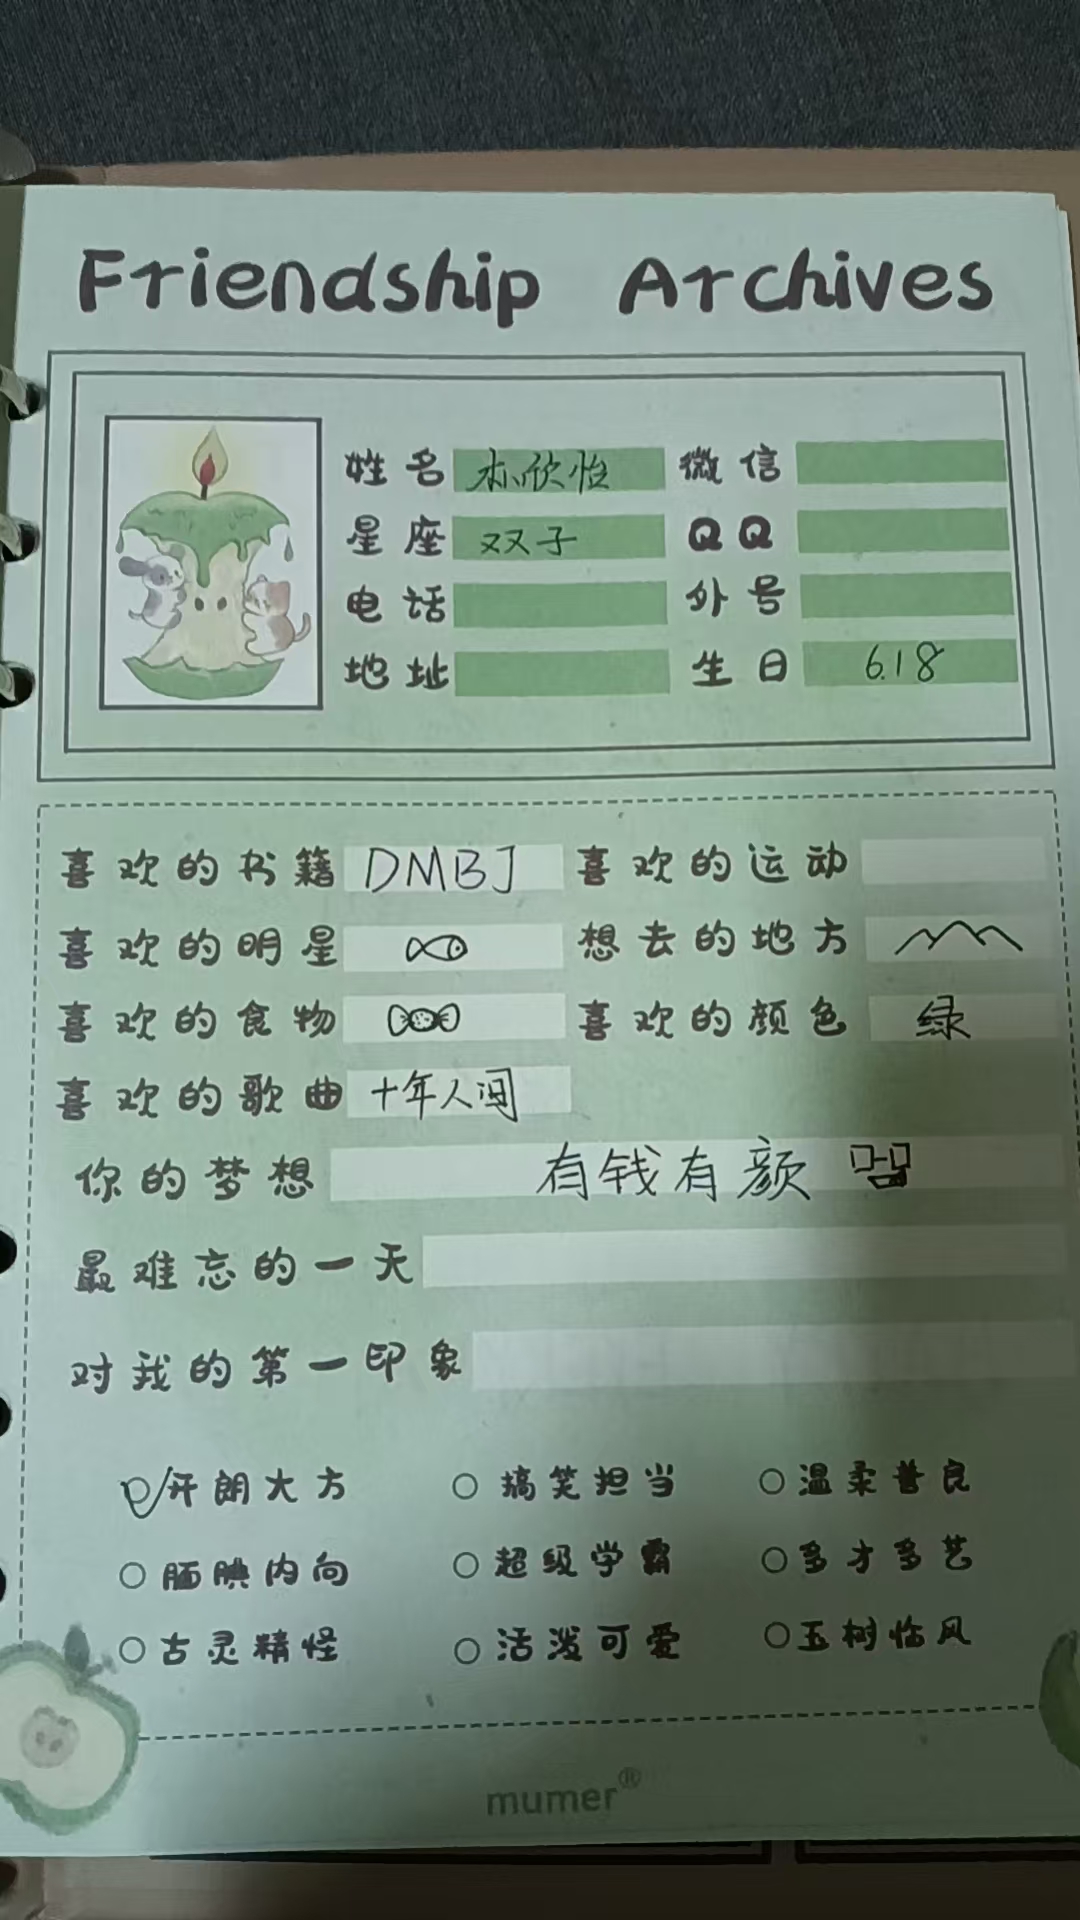 Friendship Archives
姓名 欣怡 微信
星座 双子 QQ
电话 外号
地址 生日 6.18
喜欢的书籍 DMBJ 喜欢的运动
喜欢的明星 想去的地方
喜欢的食物 喜欢的颜色 绿
喜欢的歌曲 十年人间
你的梦想 有钱有颜
最难忘的一天
对我的第一印象
开朗大方 搞笑担当 温柔善良
腼腆内向 超级学霸 多才多艺
古灵精怪 活泼可爱 玉树临风
mumer®